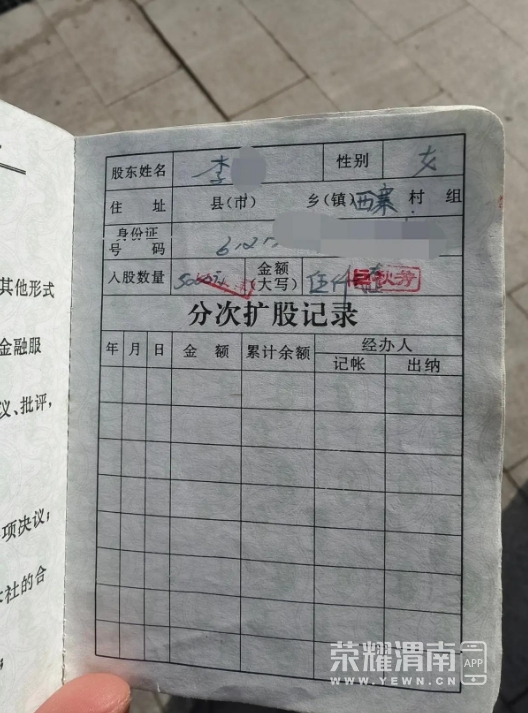 其他形式
金融服
议、批评,
项决议;
社的合
股东姓名 李 性别 女
住 址 县(市) 乡(镇)西寨村 组
身份证号码 612
入股数量 金额(大写) 伍仟
分次扩股记录
年 月 日 金 额 累计余额 经办人
记帐 出纳
荣耀渭南 APP
WWW.YEWN.CN